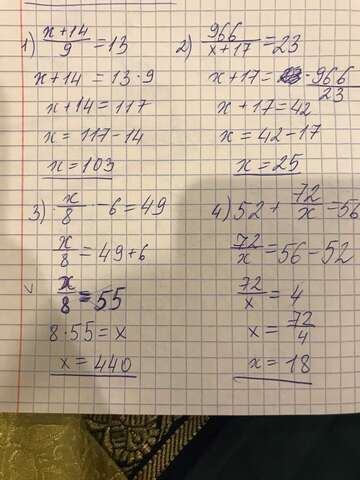 1) (x+14)/9 = 13
x+14 = 13·9
x+14 = 117
x = 117-14
x = 103
2) 966/(x+17) = 23
x+17 = 966/23
x+17 = 42
x = 42-17
x = 25
3) x/8 - 6 = 49
x/8 = 49+6
x/8 = 55
8·55 = x
x = 440
4) 52 + 72/x = 56
72/x = 56-52
72/x = 4
x = 72/4
x = 18